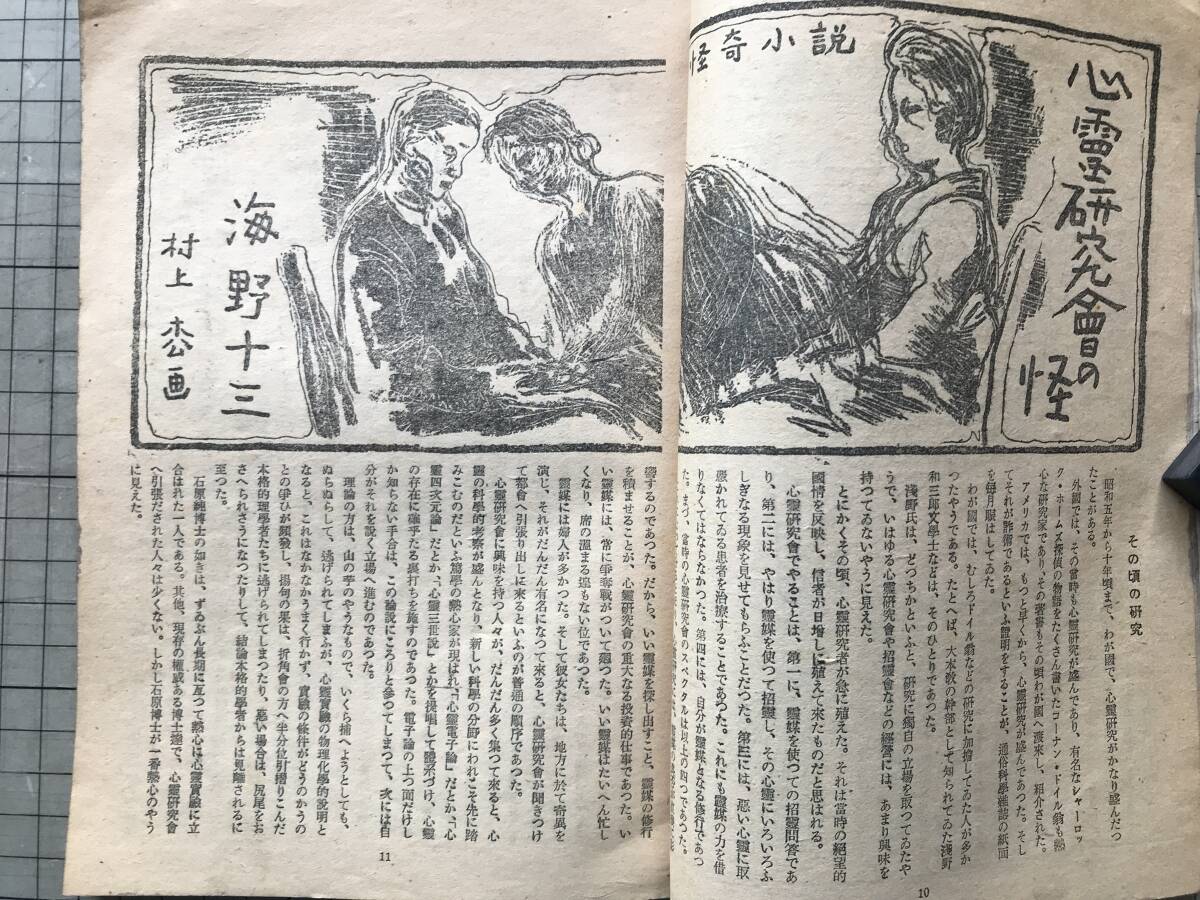 怪奇小説
心霊研究會の怪
海野十三
村上 松公画
その頃の研究
昭和五年から十年頃まで、わが國で、心靈研究がかなり盛んだつ
たことがある。
外國では、その當時も心靈研究が盛んであり、有名なシャーロッ
ク・ホームズ探偵の物語をたくさん書いたコーナン・ドイル翁も熱
心な研究家であり、その著書もその頃わが國へ渡來し、紹介された。
アメリカでは、もつと早くから、心靈研究が盛んであつた。そし
てそれが詐術であるといふ證明をすることが、通俗科學雜誌の紙面
を毎月賑はしてゐた。
わが國では、むしろドイル翁などの研究に加擔してゐた人が多か
つたやうである。たとへば、大本教の幹部として知られてゐた淺野
和三郎文學士などは、そのひとりであつた。
淺野氏は、どつちかといふと、研究に獨自の立場を取つてゐたや
うで、いはゆる心靈研究會や招靈會などの經營には、あまり興味を
持つてゐないやうに見えた。
とにかくその頃、心靈研究者が急に殖えた。それは當時の絶望的
國情を反映し、信者が日増しに殖えて來たものだと思はれる。
心靈研究會でやることは、第一に、靈媒を使つての招靈問答であ
り、第二には、やはり靈媒を使つて招靈し、その心靈にいろいろふ
しぎなる現象を見せてもらふことだつた。第三には、惡い心靈に取
憑かれてゐる患者を治療することであつた。これにも靈媒の力を借
りなくてはならなかつた。第四には、自分が靈媒となる修行であつ
た。まづ、當時の心靈研究會のスペクタルは以上の四つであつた。
10
響するのであつた。だから、いい靈媒を探し出すこと、靈媒の修行
を積ませることが、心靈研究會の重大なる投資的仕事であつた。い
い靈媒には、常に爭奪戰がついて廻つた。いい靈媒はたいへん忙し
くなり、席の溫まる遑もない位であつた。
靈媒には婦人が多かつた。そして彼女たちは、地方に於て奇異を
演じ、それがだんだん有名になつて來ると、心靈研究會が聞きつけ
て都會へ引張り出しに來るといふのが普通の順序であつた。
心靈研究會に興味を持つ人々が、だんだん多く集つて來ると、心
靈の科學的考察が盛んとなり、新しい科學の分野にわれこそ先に踏
みこむのだといふ篤學の熱心家が現はれ、「心靈電子論」だとか、「心
靈四次元論」だとか、「心靈三世説」とかを提唱して體系づけ、心靈
の存在に確乎たる裏打ちを施すのであつた。電子論の上つ面だけし
か知らない手合は、この論説にころりと參つてしまつて、次には自
分がそれを説く立場へ進むのであつた。
理論の方は、山の芋のやうなもので、いくら捕へようとしても、
ぬらぬらして、逃げられてしまふが、心靈實驗の物理化學的説明と
なると、これはなかなかうまく行かず、實驗の條件がどうのかうの
との爭ひが頻發し、揚句の果は、折角會の方へ半分位引摺りこんだ
本格的理學者たちに逃げられてしまつたり、惡い場合は、尻尾をお
さへられさうになつたりして、結論本格的學者からは見離されるに
至つた。
石原純博士の如きは、ずゐぶん長期に亙つて熱心は心靈實驗に立
合はれた一人である。其他、現存の權威ある博士達で、心靈研究會
へ引張だされた人々は少くない。しかし石原博士が一番熱心のやう
に見えた。
11